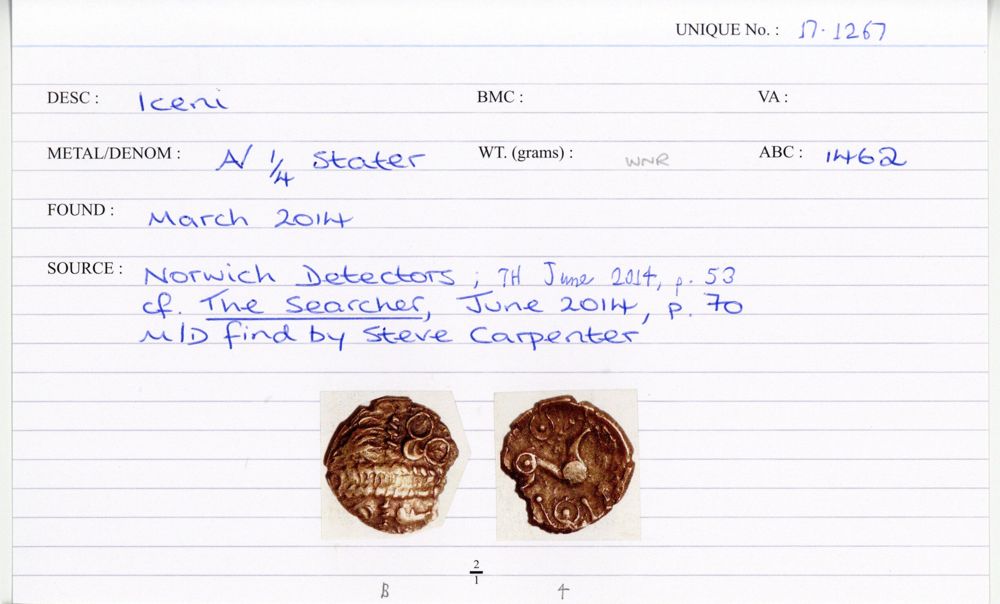 UNIQUE No. : 17.1267
DESC : Iceni BMC : VA :
METAL/DENOM : A/ 1/4 Stater WT. (grams) : WNR ABC : 1462
FOUND : March 2014
SOURCE : Norwich Detectors ; TH June 2014, p. 53
cf. The Searcher, June 2014, p. 70
M/D find by Steve Carpenter
2
1
B 4